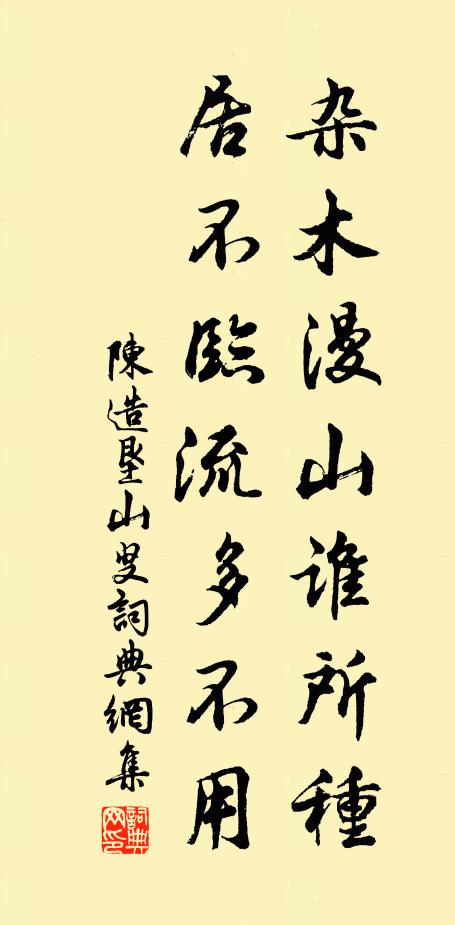 杂木漫山谁所種
居不臨流多不用
陳造垦山叟詞典網集
詞典网印